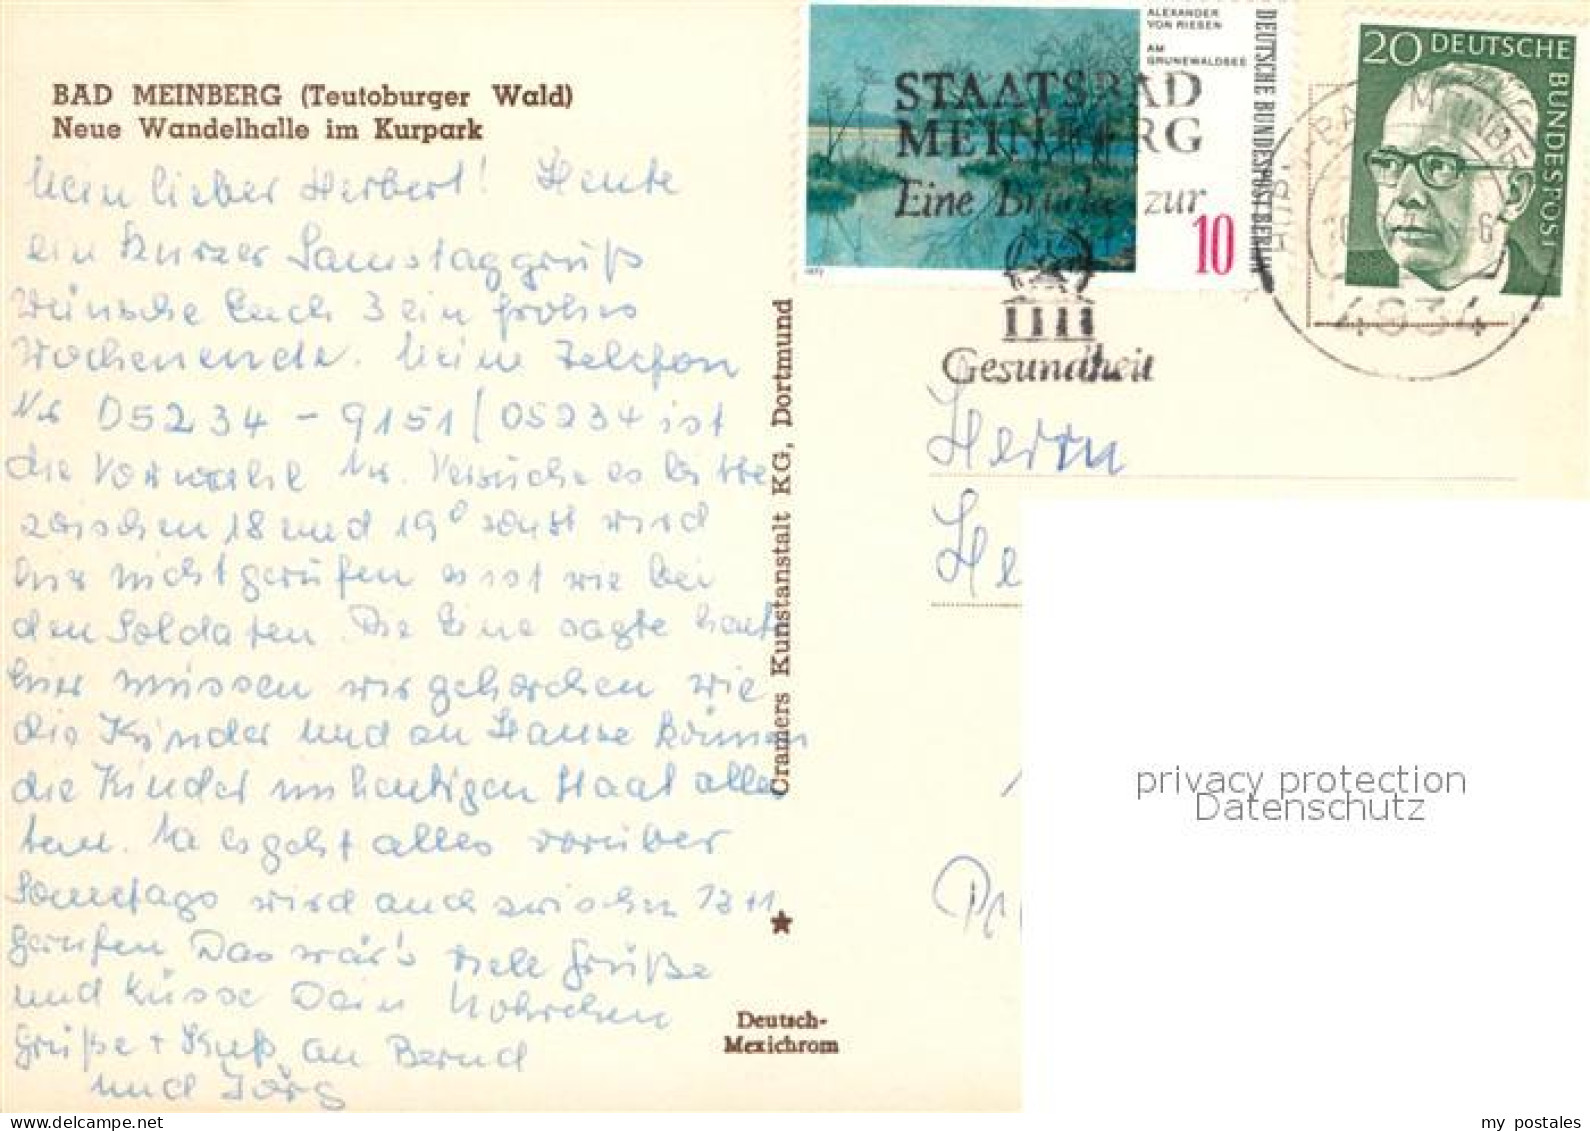 BAD MEINBERG (Teutoburger Wald)
Neue Wandelhalle im Kurpark
Mein lieber Herbert! Heute
ein kurzer Samstaggruß
Wünsche Euch 3 ein frohes
Wochenende. Meine Telefon
Nr 05234 - 9151 / 05234 ist
die Vorwahl Nr. Versuche es bitte
zwischen 18 und 19⁰ sonst wird
hier nicht gerufen es ist wie bei
den Soldaten. Die Eine sagte heut
hier müssen wir gehorchen wie
die Kinder und zu Hause können
die Kinder im heutigen Staat alles
tun. Na es geht alles vorüber
Sonntags wird auch zwischen
gerufen Das wär's viele Grüße
und Küsse Dein
Grüße + Kuß an Bernd
und Jörg
Cramers Kunstanstalt KG, Dortmund
Deutsch-
Mexichrom
ALEXANDER
VON RIESEN
AM
GRUNEWALDSEE
DEUTSCHE BUNDESPOST BERLIN
10
1972
STAATSBAD
MEINBERG
Eine Brücke zur
Gesundheit
20 DEUTSCHE
BUNDESPOST
BAD MEINBE
4934
Herrn
He
privacy protection
Datenschutz
my postales